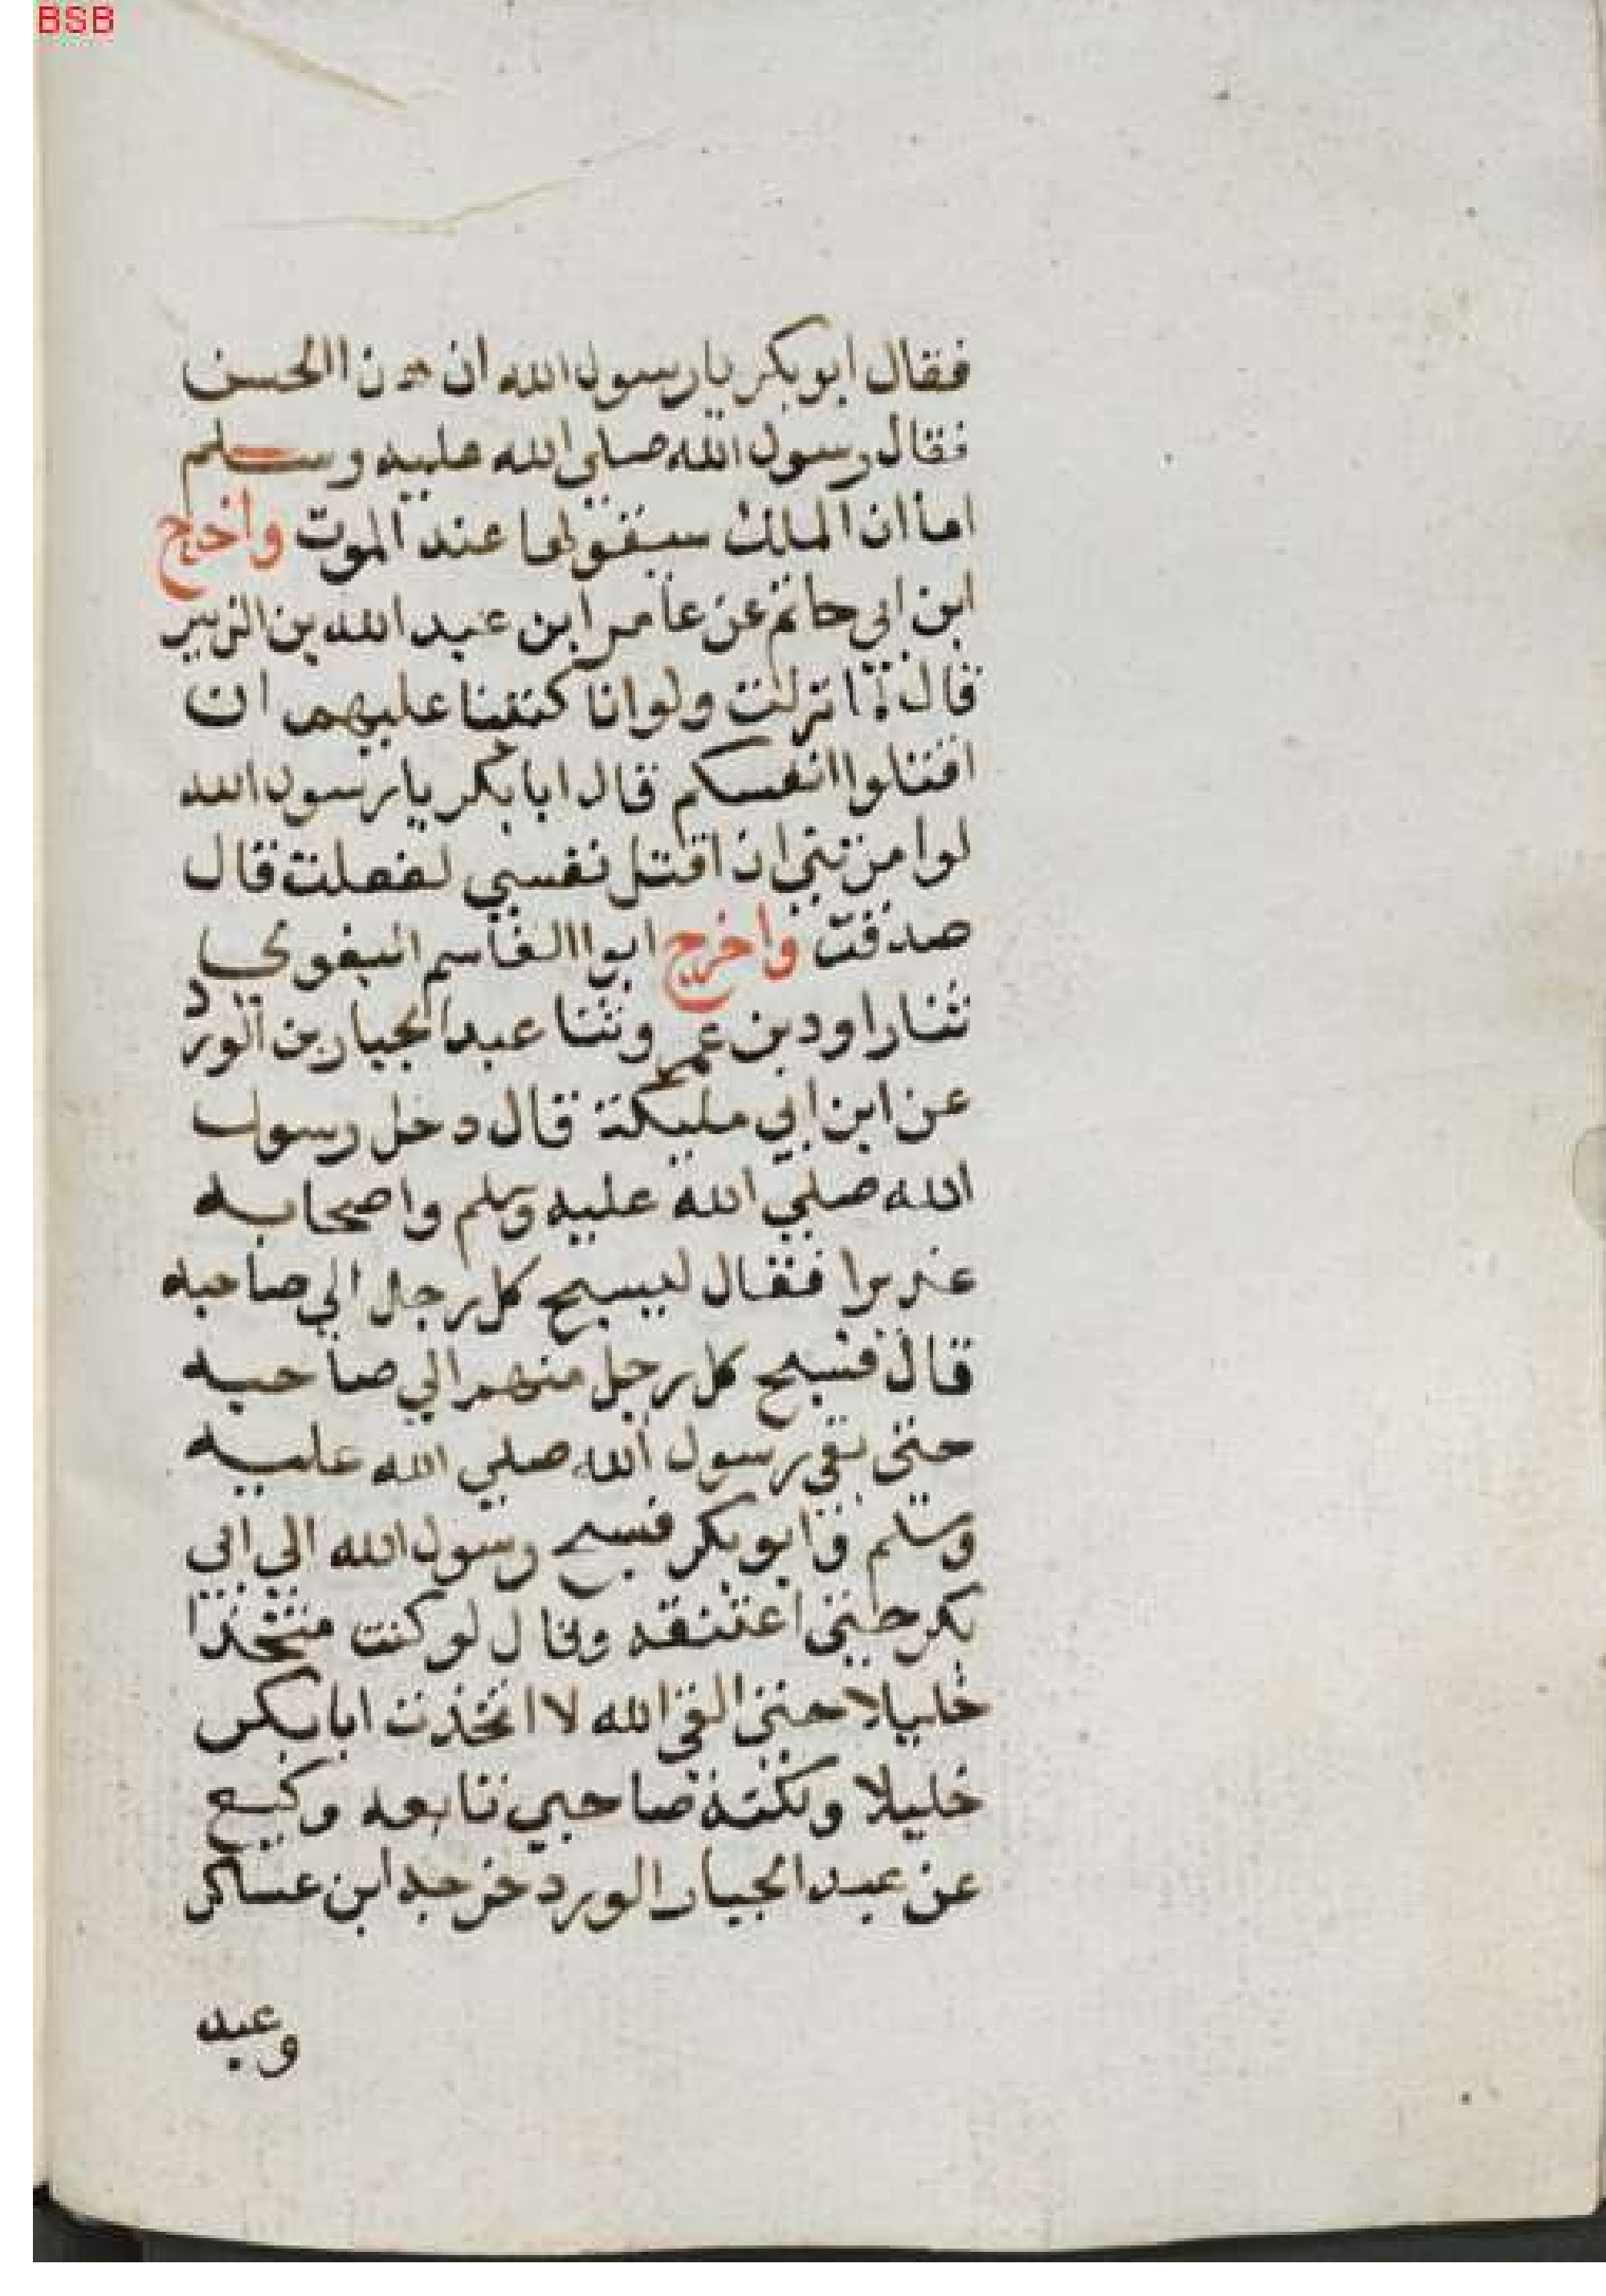 BSB
فقال ابو بكر يا رسول الله ان هذا الحسن
فقال رسول الله صلي الله عليه وسلم
اما ان الملك سيقولها عند الموت واخرج
ابن ابي حاتم عن عامر ابن عبد الله بن الزبير
قال لما نزلت ولو انا كتبنا عليهم ان
اقتلوا انفسكم قال ابا بكر يا رسول الله
لو امرتني ان اقتل نفسي لفعلت قال
صدقت واخرج ابوا القاسم البغوي
ثنا داود بن عمر وثنا عبد الجبار بن الورد
عن ابن ابي مليكة قال دخل رسول
الله صلي الله عليه وسلم واصحابه
فقال ليسبح كل رجل الي صاحبه
قال فسبح كل رجل منهم الي صاحبه
حتي بقي رسول الله صلي الله عليه
وسلم وابو بكر فسبح رسول الله الي ابي
بكر حتي اعتنقه وقال لو كنت متخذا
خليلا حتي القي الله لا اتخذت ابا بكر
خليلا ولكنه صاحبي تابعه وكيع
عن عبد الجبار الورد خرجه ابن عساكر
وعبد